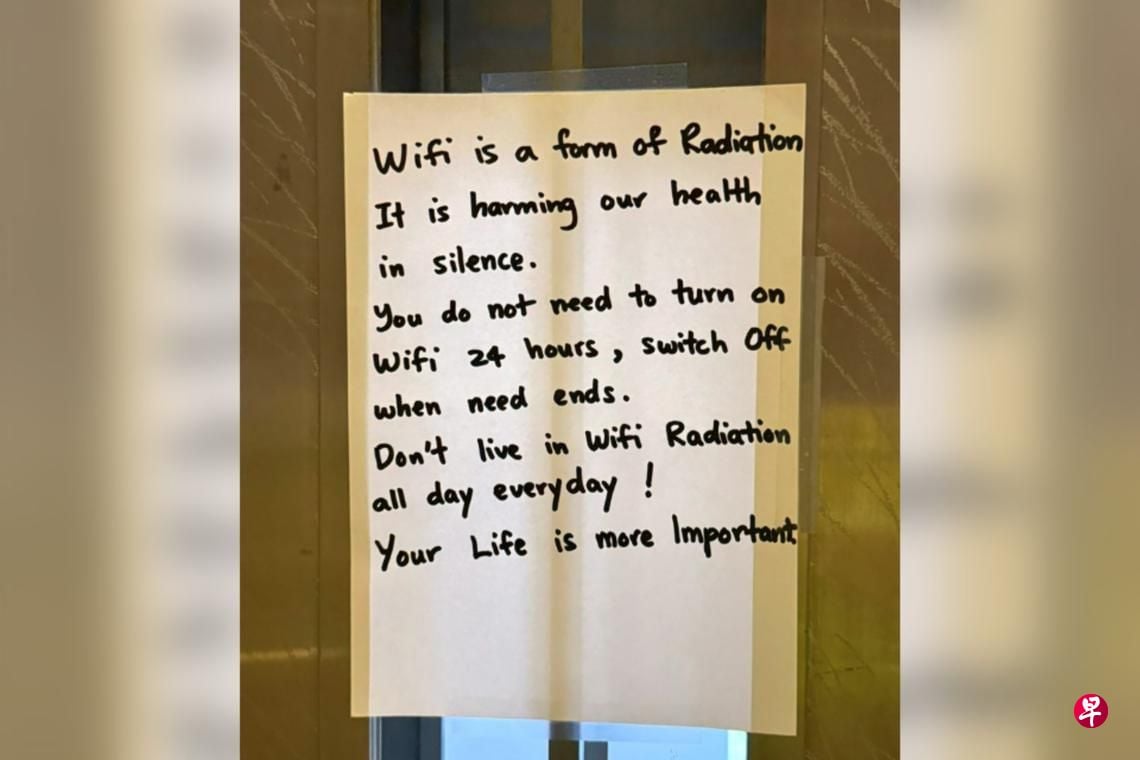 Wifi is a form of Radiation
It is harming our health
in silence.
You do not need to turn on
Wifi 24 hours, switch Off
when need ends.
Don't live in Wifi Radiation
all day everyday !
Your Life is more Important
早